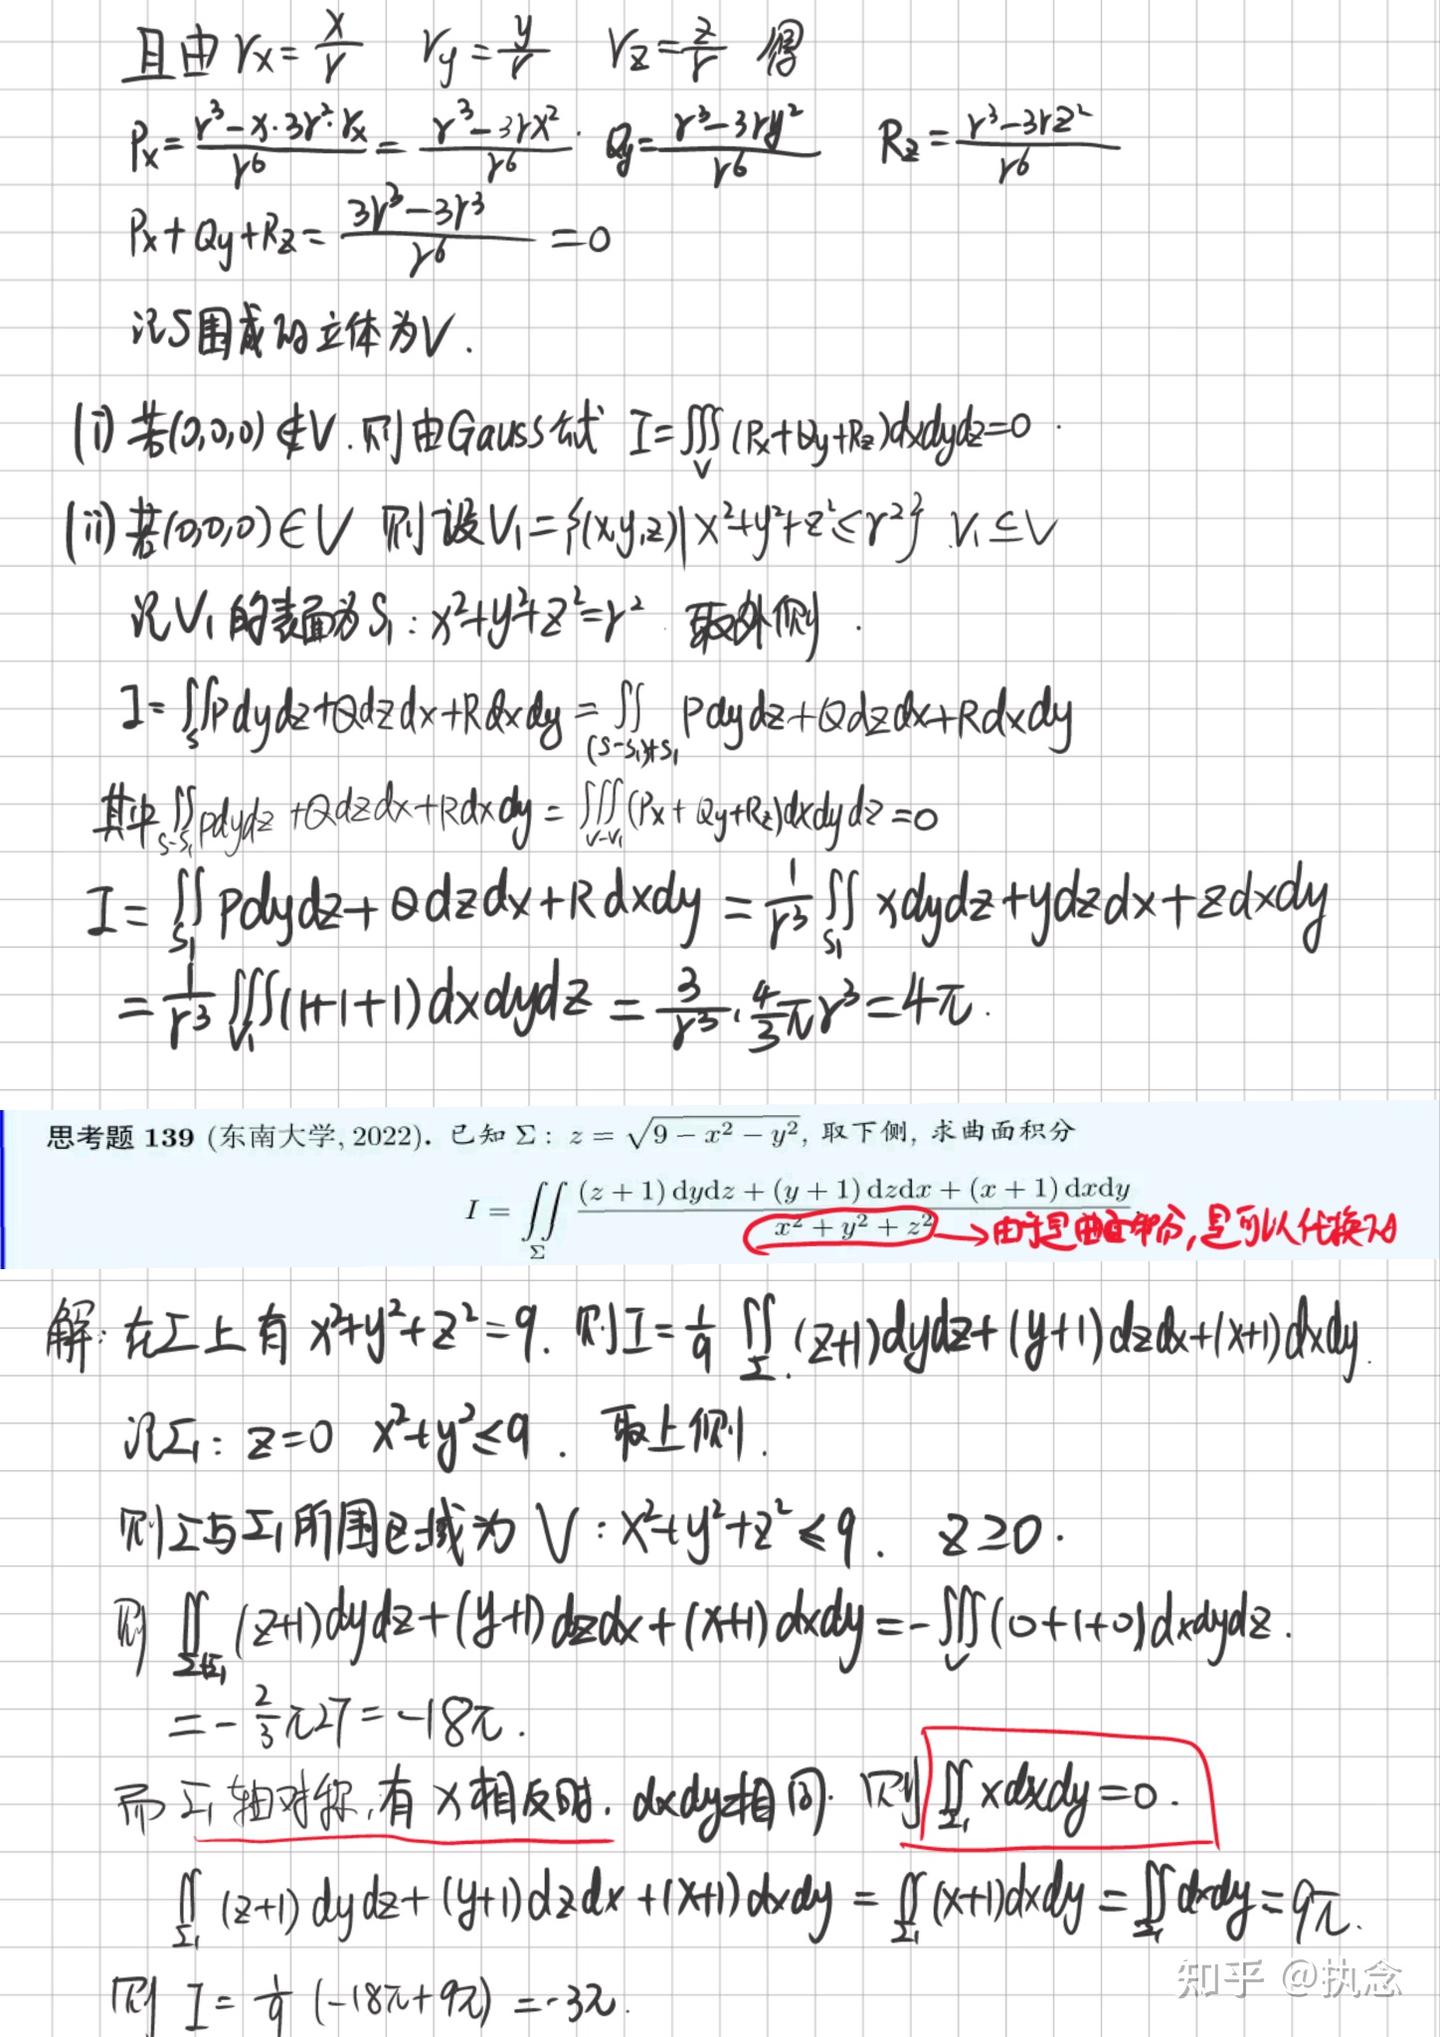 且由 r_x = x/r r_y = y/r r_z = z/r 得
P_x = (r³ - x·3r²·r_x)/r⁶ = (r³ - 3rx²)/r⁶ · Q_y = (r³ - 3ry²)/r⁶ R_z = (r³ - 3rz²)/r⁶
P_x + Q_y + R_z = (3r³ - 3r³)/r⁶ = 0
记S围成的立体为V.
(i) 若(0,0,0) ∉ V. 则由Gauss公式 I = ∭_V (P_x + Q_y + R_z) dxdydz = 0 .
(ii) 若(0,0,0) ∈ V 则设 V₁ = {(x,y,z) | x² + y² + z² ≤ r²} V₁ ⊆ V
记V₁的表面为S₁: x² + y² + z² = r² 取外侧 .
I = ∬_S Pdydz + Qdzdx + Rdxdy = ∬_{(S-S₁)+S₁} Pdydz + Qdzdx + Rdxdy
其中 ∬_{S-S₁} Pdydz + Qdzdx + Rdxdy = ∭_{V-V₁} (P_x + Q_y + R_z) dxdydz = 0
I = ∬_{S₁} Pdydz + Qdzdx + Rdxdy = 1/r³ ∬_{S₁} xdydz + ydzdx + zdxdy
= 1/r³ ∭_{V₁} (1+1+1) dxdydz = 3/r³ · 4/3 πr³ = 4π .
思考题 139 (东南大学, 2022). 已知 Σ : z = √(9 − x² − y²), 取下侧, 求曲面积分
I = ∬_Σ ((z + 1) dydz + (y + 1) dzdx + (x + 1) dxdy)/(x² + y² + z²)
→由于是曲面部分,是可以代换的
解: 在Σ上有 x² + y² + z² = 9. 则 I = 1/9 ∬_Σ (z+1)dydz + (y+1)dzdx + (x+1)dxdy.
记Σ₁: z = 0 x² + y² ≤ 9 . 取上侧.
则Σ与Σ₁所围区域为 V : x² + y² + z² ≤ 9. z ≥ 0 .
则 ∬_{Σ+Σ₁} (z+1)dydz + (y+1)dzdx + (x+1)dxdy = - ∭_V (0+1+0) dxdydz .
= - 2/3 π27 = -18π .
而Σ₁轴对称,有x相反时, dxdy相同. 则 ∬_{Σ₁} xdxdy = 0 .
∬_{Σ₁} (z+1) dydz + (y+1) dzdx + (x+1) dxdy = ∬_{Σ₁} (x+1)dxdy = ∬_{Σ₁} dxdy = 9π.
则 I = 1/9 (-18π + 9π) = -3π.
知乎 @执念